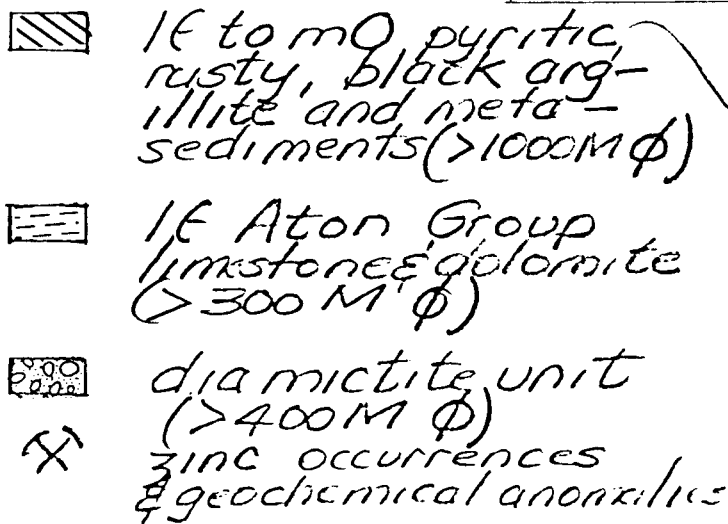 lЄ to mO pyritic,
rusty, black arg-
illite and meta-
sediments (>1000M ϕ)
lЄ Aton Group
limestone & dolomite
(>300 M ϕ)
diamictite unit
(>400M ϕ)
zinc occurrences
& geochemical anomalies